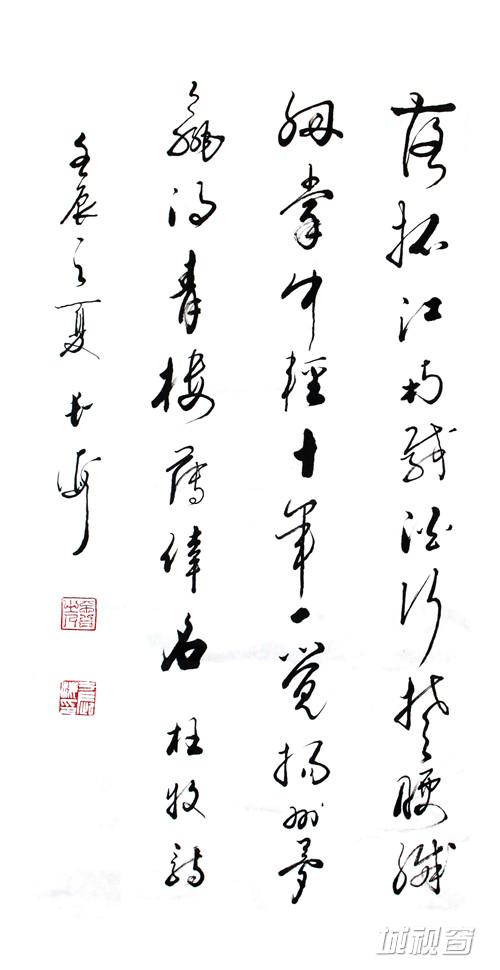 落拓江南載酒行楚腰纖
細掌中輕十年一覺揚州夢
贏得青樓薄倖名 杜牧詩
壬辰之夏
城视窗